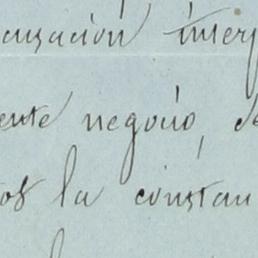 cusación interp
ente negocio, de
tos la constan